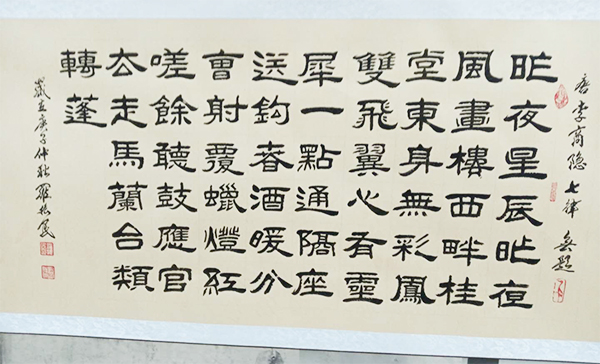 唐李商隐七律無題
昨夜星辰昨夜
風畫樓西畔桂
堂東身無彩鳳
雙飛翼心有靈
犀一點通隔座
送鈎春酒暖分
會射覆蠟燈紅
嗟餘聽鼓應官
去走馬蘭台類
轉蓬
歲在庚子仲秋羅